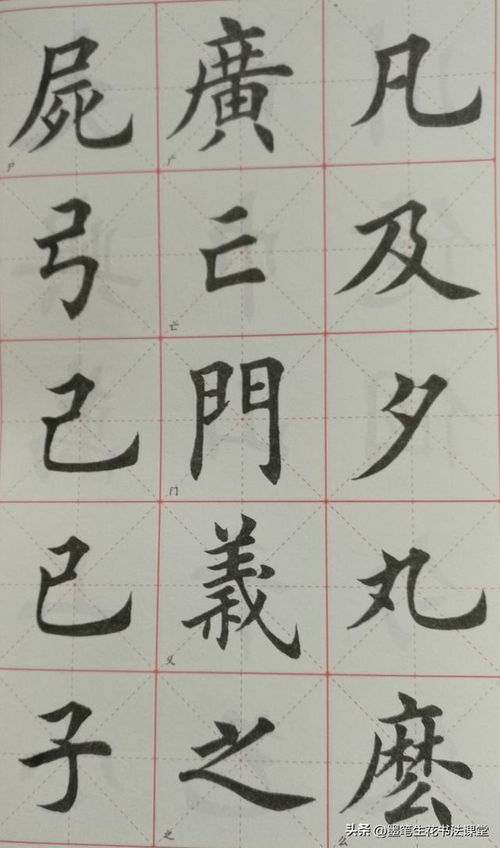 凡及夕丸麼么
廣广亡亡門门義义之之
屍尸弓己已子
头条 @墨笔生花书法课堂